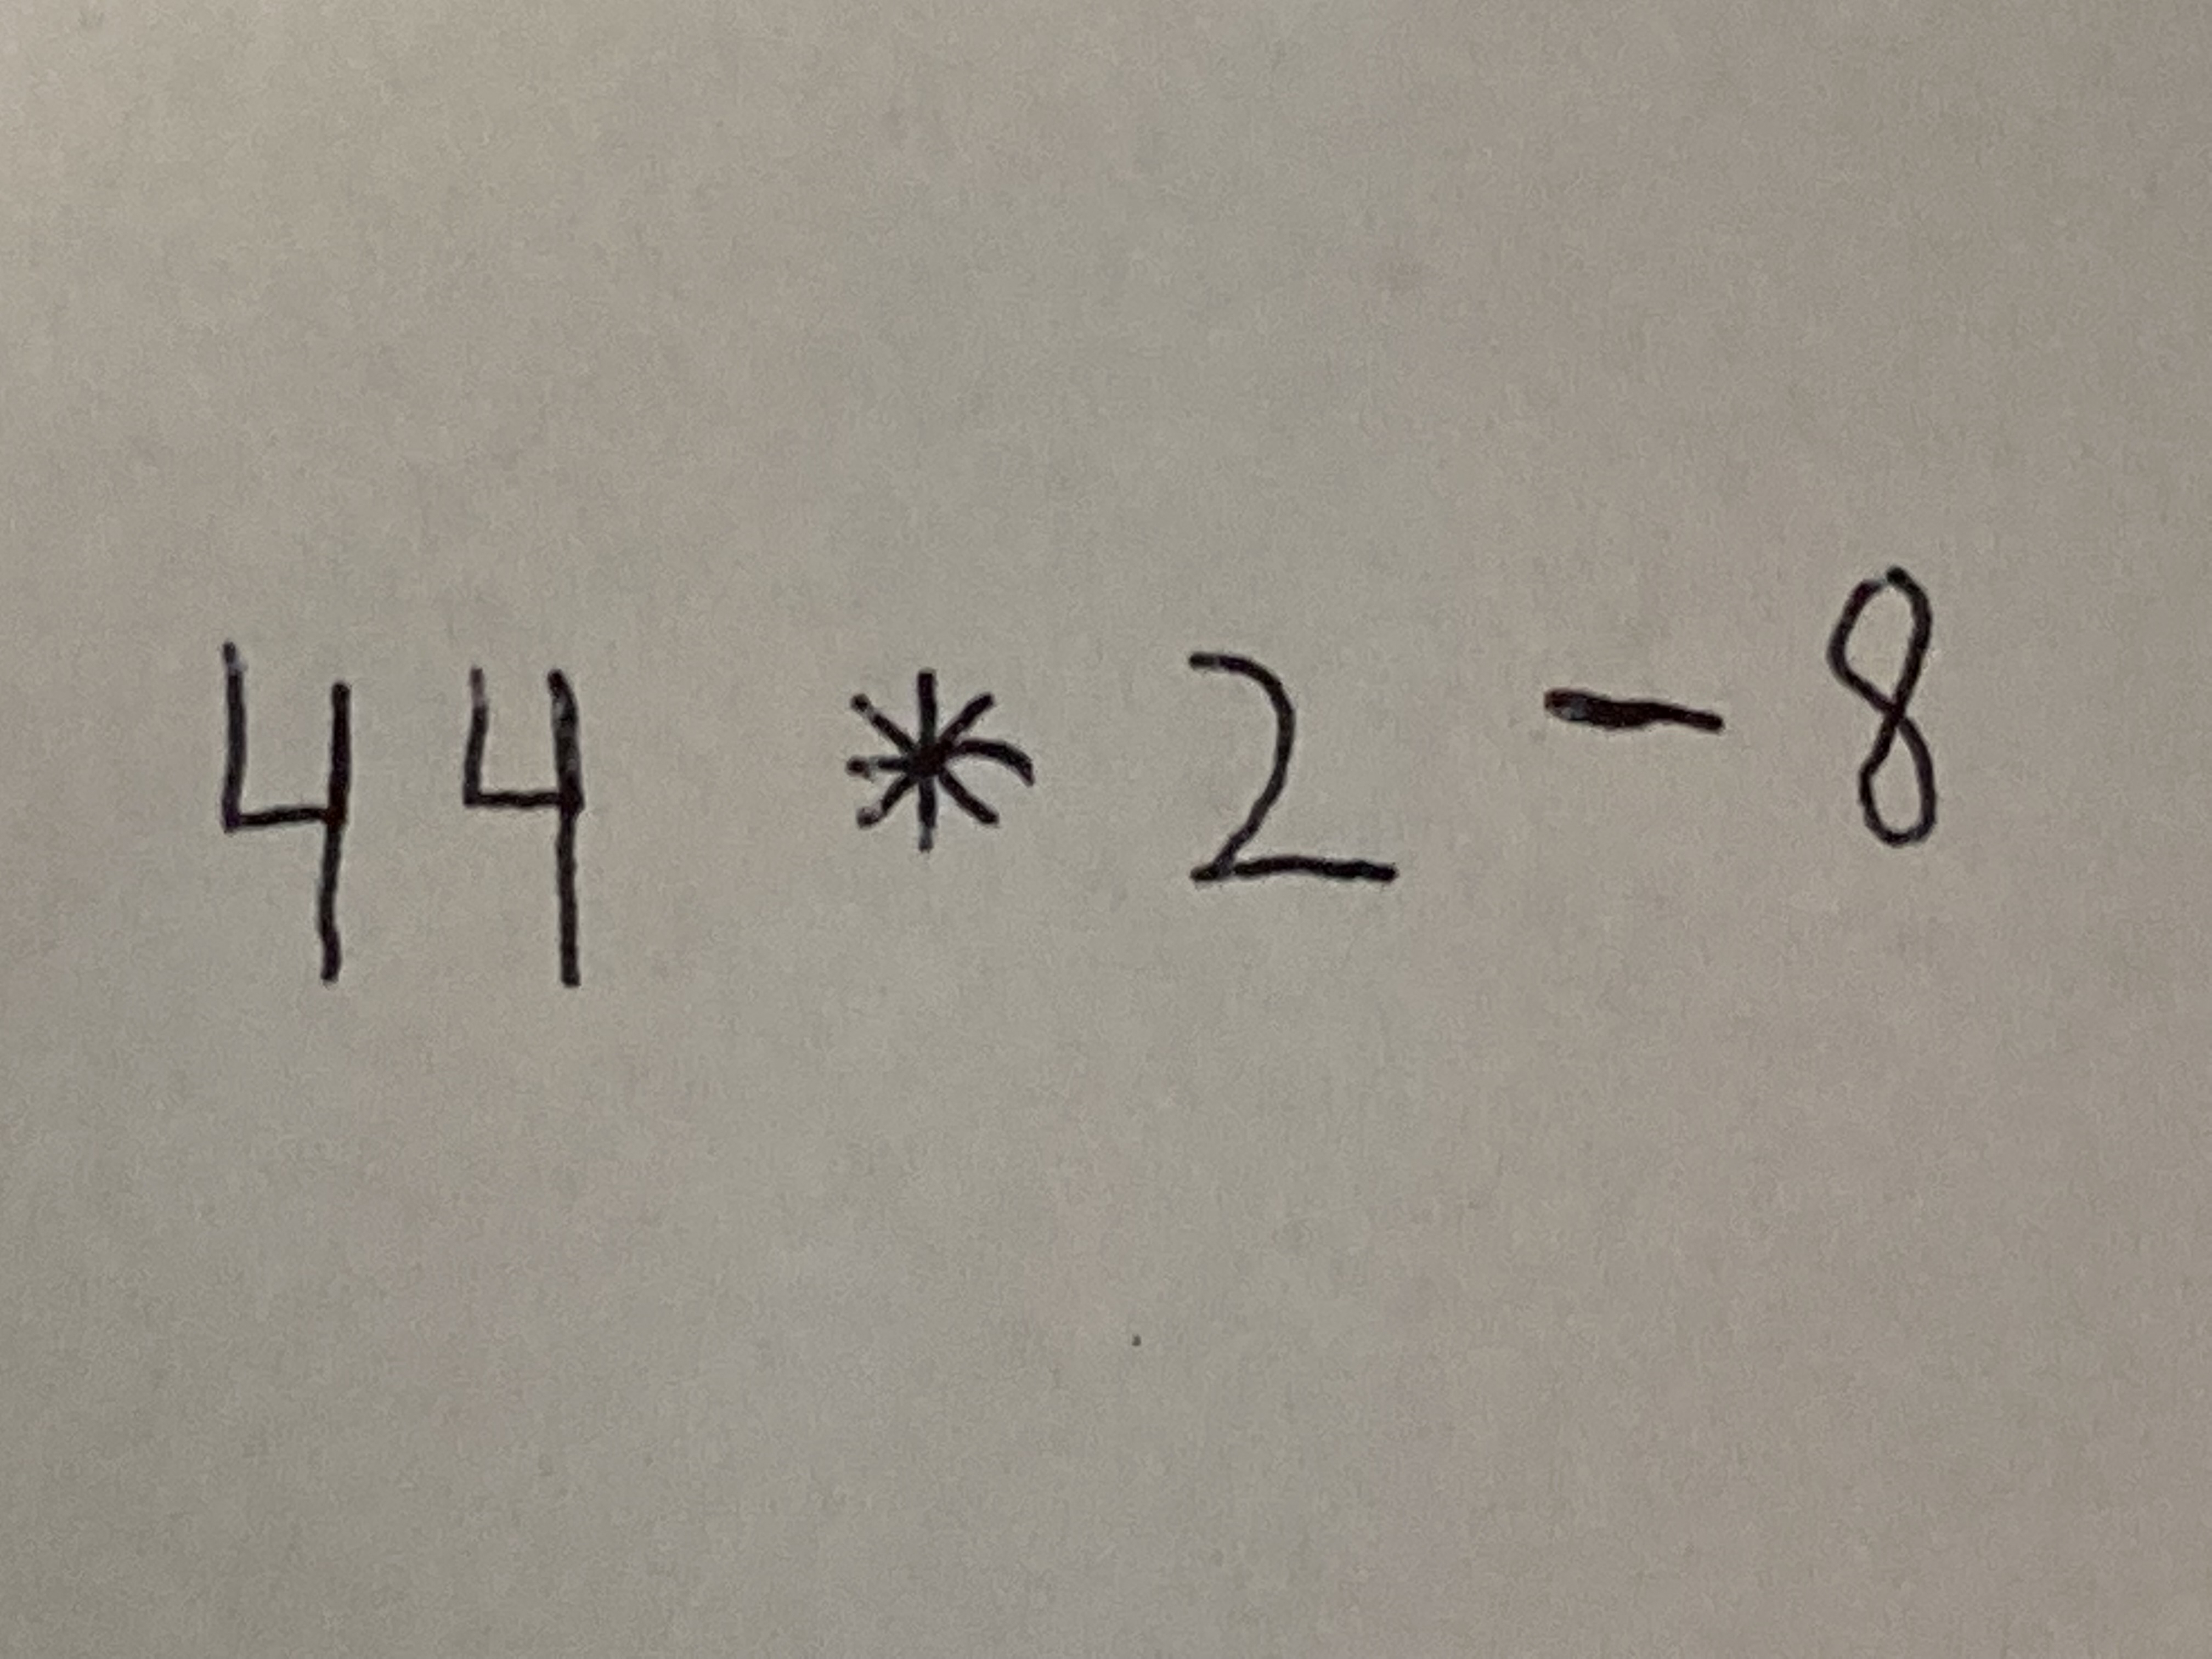 44 * 2 - 8